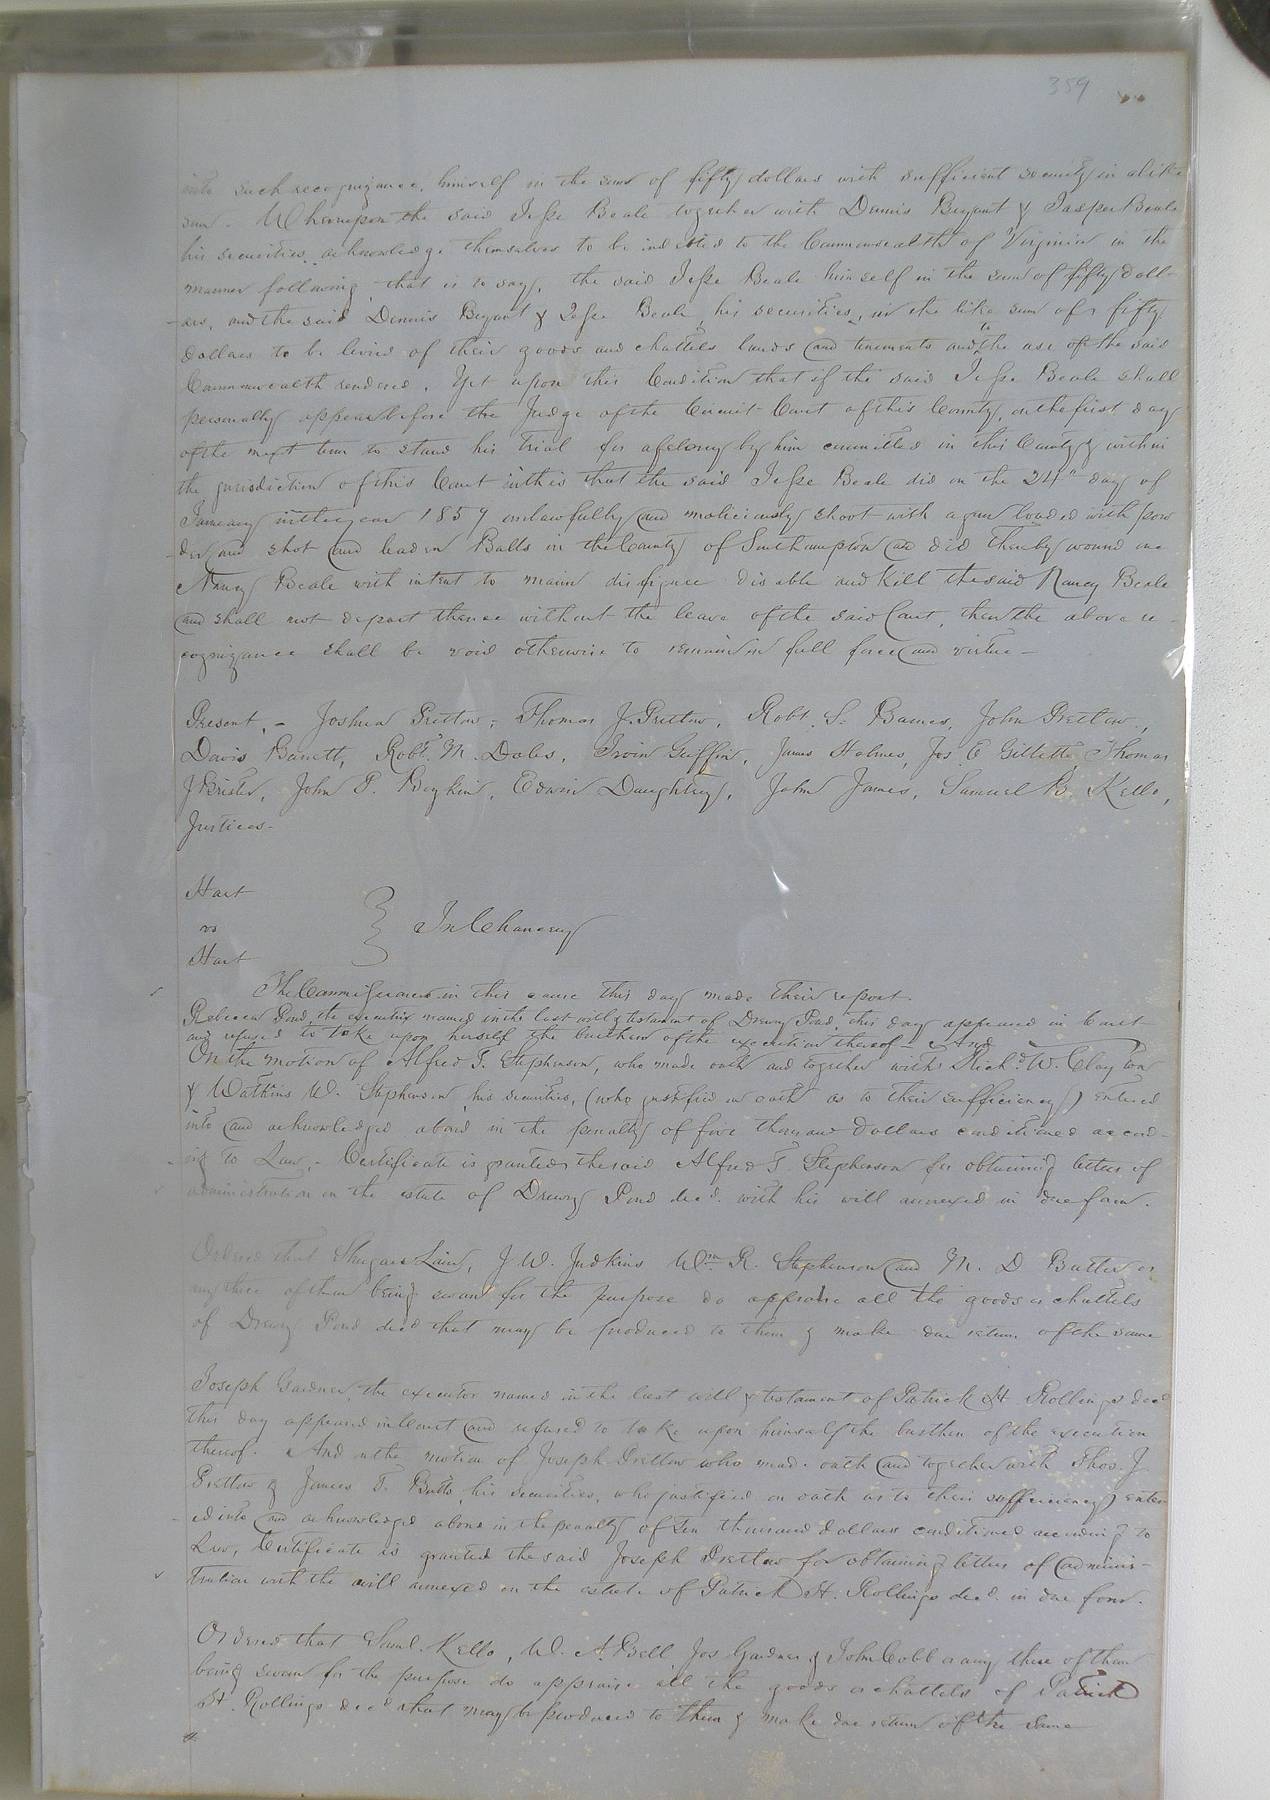 359
into such recognizance, himself in the sum of fifty dollars with sufficient security in a like
sum. Whereupon the said Jesse Beale together with Dennis Bryant & Jasper Beale
his securities, acknowledge themselves to be indebted to the Commonwealth of Virginia in the
manner following, that is to say, the said Jesse Beale himself in the sum of fifty doll-
-ars, and the said Dennis Bryant & Jesse Beale, his securities, in the like sum of fifty
dollars to be levied of their goods and chattels lands and tenements and to the use of the said
Commonwealth rendered. Yet upon this Condition that if the said Jesse Beale shall
personally appear before the Judge of the Circuit Court of this County, on the first day
of the next term to stand his trial for a felony by him committed in this County & within
the jurisdiction of this Court in this that the said Jesse Beale did on the 24th day of
January in the year 1857 unlawfully and maliciously shoot with a gun loaded with pow
-der and shot and leaden Balls in the County of Southampton and did thereby wound one
Nancy Beale with intent to maim disfigure disable and kill the said Nancy Beale
and shall not depart thence without the leave of the said Court, then the above re-
cognizance shall be void otherwise to remain in full force and virtue -
Present, - Joshua Pretlow, Thomas J. Pretlow, Robt. S. Barnes, John Pretlow,
Davis Barrett, Robt. M. Dobes, Irvin Griffin, James Holmes, Jos. E Gillette, Thomas
J Brister, John T. Boykin, Edwin Daughtrey, John James, Samuel B. Kello,
Justices -
Hart
vs
Hart
} In Chancery
The Commissioners in this cause this day made their report.
Rebecca Pond, the executrix named in the last will & testament of Drewry Pond, this day appeared in Court
and refused to take upon herself the burthen of the execution thereof - And
On the motion of Alfred T. Stephenson, who made oath and together with Richd. W. Clayton
& Watkins W. Stephenson, his securities, (who justified on oath as to their sufficiency) entered
into and acknowledged a bond in the penalty of five thousand dollars conditioned accord-
-ing to Law, - Certificate is granted the said Alfred T. Stephenson for obtaining letters of
administration on the estate of Drewry Pond decd. with his will annexed in due form.
Ordered that Shugars Lain, J. W. Judkins Wm R. Stephenson and M. D Butler or
any three of them being sworn for the purpose do appraise all the goods & chattels
of Drewry Pond decd that may be produced to them & make due return of the same
Joseph Gardner the executor named in the last will & testament of Patrick H. Rollings decd
this day appeared in Court and refused to take upon himself the burthen of the execution
thereof. And on the motion of Joseph Pretlow who made oath and together with Thos. J.
Pretlow & James T. Butts, his Securities, who justified on oath as to their sufficiency) enter
-ed into and acknowledged a bond in the penalty of ten thousand dollars conditioned according to
Law, Certificate is granted the said Joseph Pretlow for obtaining letters of adminis-
tration with the will annexed on the estate of Patrick H. Rollings decd. in due form.
Ordered that Saml. Kello, W. A. Bell, Jos Gardner & John Cobb or any three of them
being sworn for the purpose do appraise all the goods & chattels of Patrick
H. Rollings decd that may be produced to them & make due return of the same